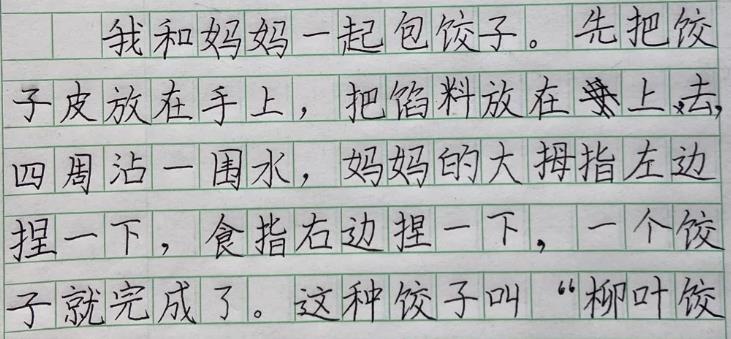 我和妈妈一起包饺子。先把饺
子皮放在手上，把馅料放在上去，
四周沾一围水，妈妈的大拇指左边
捏一下，食指右边捏一下，一个饺
子就完成了。这种饺子叫“柳叶饺